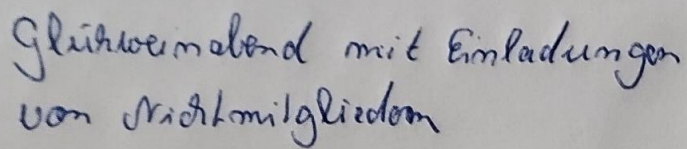 Glühweinabend mit Einladungen
von Nichtmitgliedern